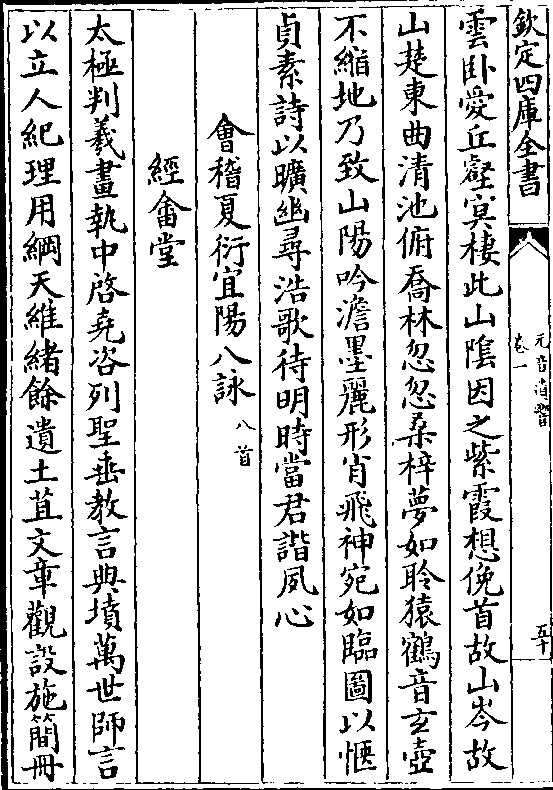 欽定四庫全書
元音遺響
卷一
五十
雲卧愛丘壑冥棲此山隂因之紫霞想俛首故山岑故
山楚東曲清池俯喬林忽忽桑梓夢如聆猿鶴音玄壺
不縮地乃致山陽吟澹墨麗形肖飛神宛如臨圖以愜
貞素詩以曠幽尋浩歌待明時當君諧夙心
會稽夏衍宜陽八詠八首
經畬堂
太極判羲畫執中啓堯咨列聖垂教言典墳萬世師言
以立人紀理用綱天維緒餘遺土苴文章觀設施簡冊